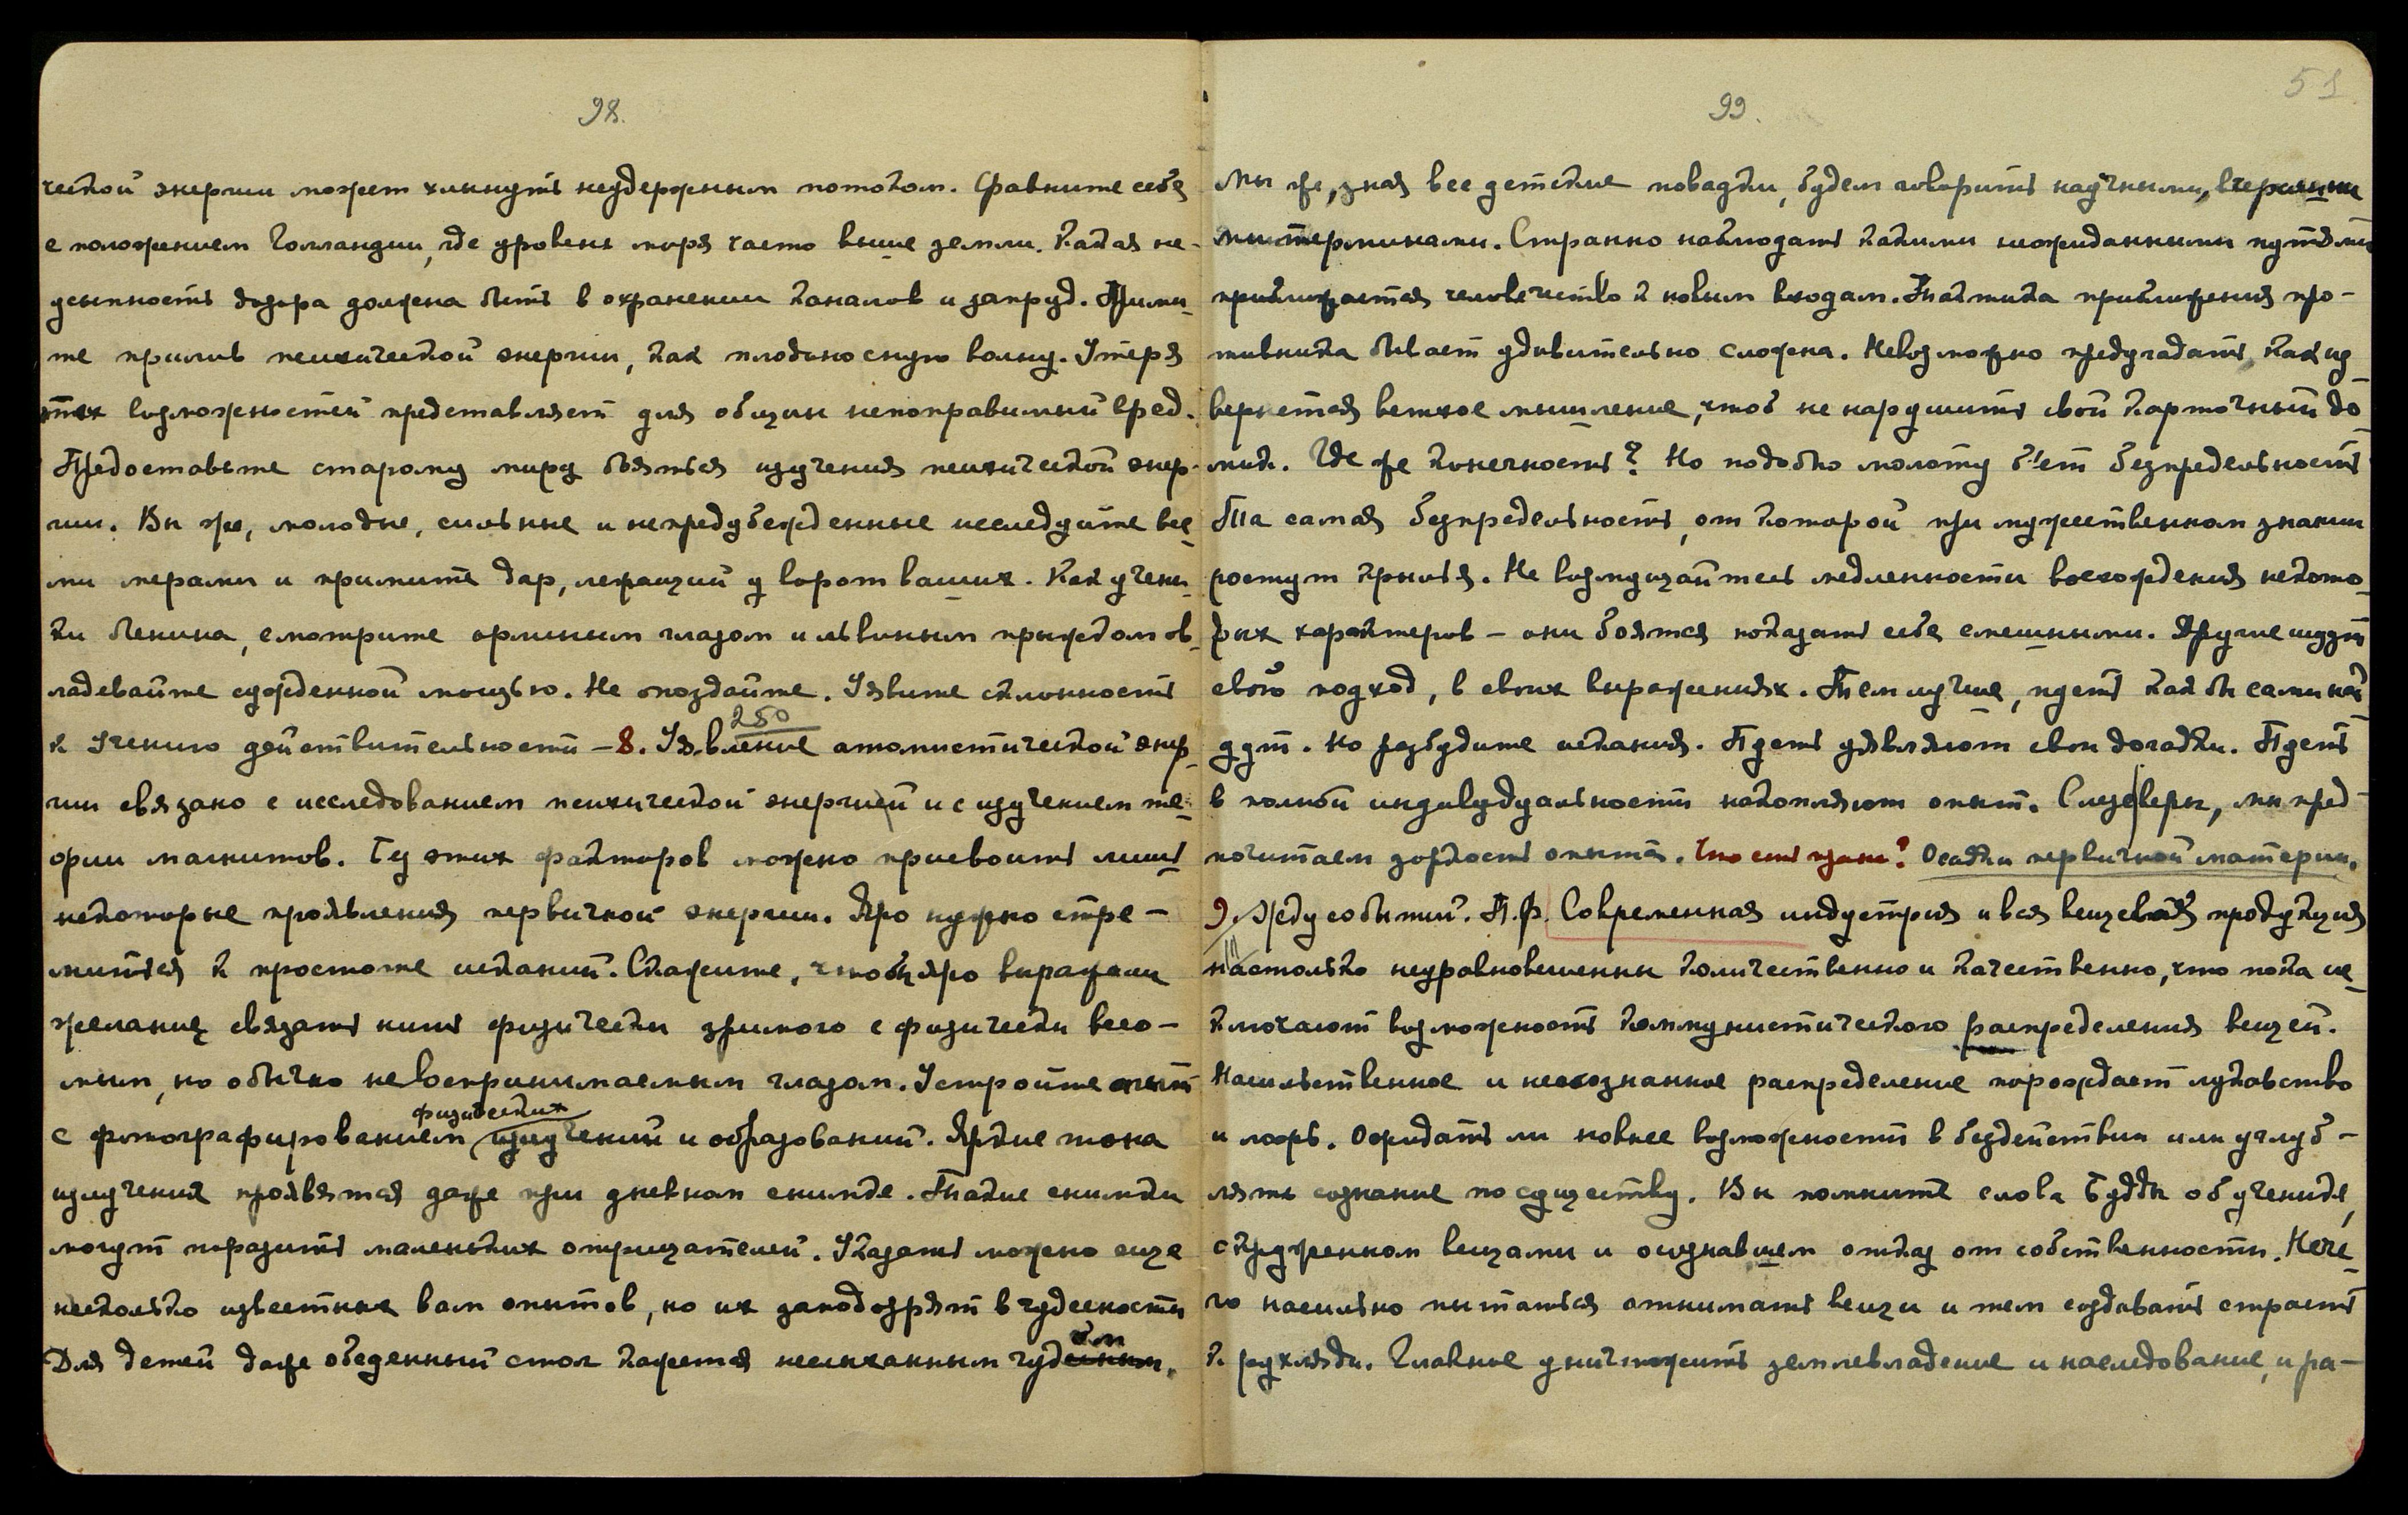 98.
ческой энергии может хлынуть неудержным потоком. Сравните себя
с положением Голландии, где уровень моря часто выше земли. Какая не-
усыпность дозора должна быть в охранении каналов и запруд. Прими-
те прилив психической энергии, как плодоносную волну. Утеря
этих возможностей представляет для общины непоправимый вред.
Предоставьте старому миру бояться изучения психической энер-
гии. Вы же, молодые, сильные и непредубежденные исследуйте все-
ми мерами и примите дар, лежащий у ворот ваших. Как учени-
ки Ленина, смотрите орлиным глазом и львиным прыжком ов-
ладевайте сужденной мощью. Не опоздайте. Явите склонность
250
к Учению действительности – 8. Явление атомистической энер-
гии связано с исследованием психической энергией и с изучением те-
ории магнитов. Без этих факторов можно присвоить лишь
некоторые проявления первичной энергии. Яро нужно стре-
миться к простоте исканий. Скажите, чтобы яро выражали
желание связать нить физически зримого с физически весо-
мым, но обычно невоспринимаемым глазом. Устройте опыт
физических
с фотографированием излучений и образований. Яркие тона
излучения проявятся даже при дневном снимке. Такие снимки
могут поразить маленьких отрицателей. Указать можно еще
несколько известных вам опытов, но их заподозрят в чудесности
Для детей даже обеденный стол кажется неслыханным чудом.
99.
51
Мы же, зная все детские повадки, будем говорить научными, вчерашни-
ми терминами. Странно наблюдать какими неожиданными путями
приближается человечество к новым входам. Тактика приближения про-
тивника бывает удивительно сложна. Невозможно предугадать, как из-
вернется ветхое мышление, чтоб не нарушить свой карточный до-
мик. Где же конечность? Но подобно молоту бьет безпредельность
Та самая безпредельность, от которой при мужественном знании
ростут крылья. Не возмущайтесь медленности восхождения некото-
рых характеров – они боятся показать себя смешными. Другие ищут
свой подход, в своих выражениях. Тем лучше, пусть как бы сами най-
дут. Но разбудите искания. Пусть уявляют свои догадки. Пусть
в полной индивудуальности накопляют опыт. Слезе веры, мы пред-
почитаем зоркость опыта. Что есть прана? Осадки первичной материи.
9. Жду событий. П.Ф. Современная индустрия и вся вещевая продукция
настолько неуравновешенны количественно и качественно, что пока ис-
ключают возможность коммунистического распределения вещей.
Насильственное и неосознанное распределение порождает лукавство
и ложь. Ожидать ли новые возможности в бездействии или углуб-
лять сознание по существу. Вы помните слова Будды об ученике,
окруженном вещами и осознавшем отказ от собственности. Нече-
го насильно пытаться отнимать вещи и тем создавать страсть
к рухляди. Главное уничтожить землевладение и наследование, и ра-